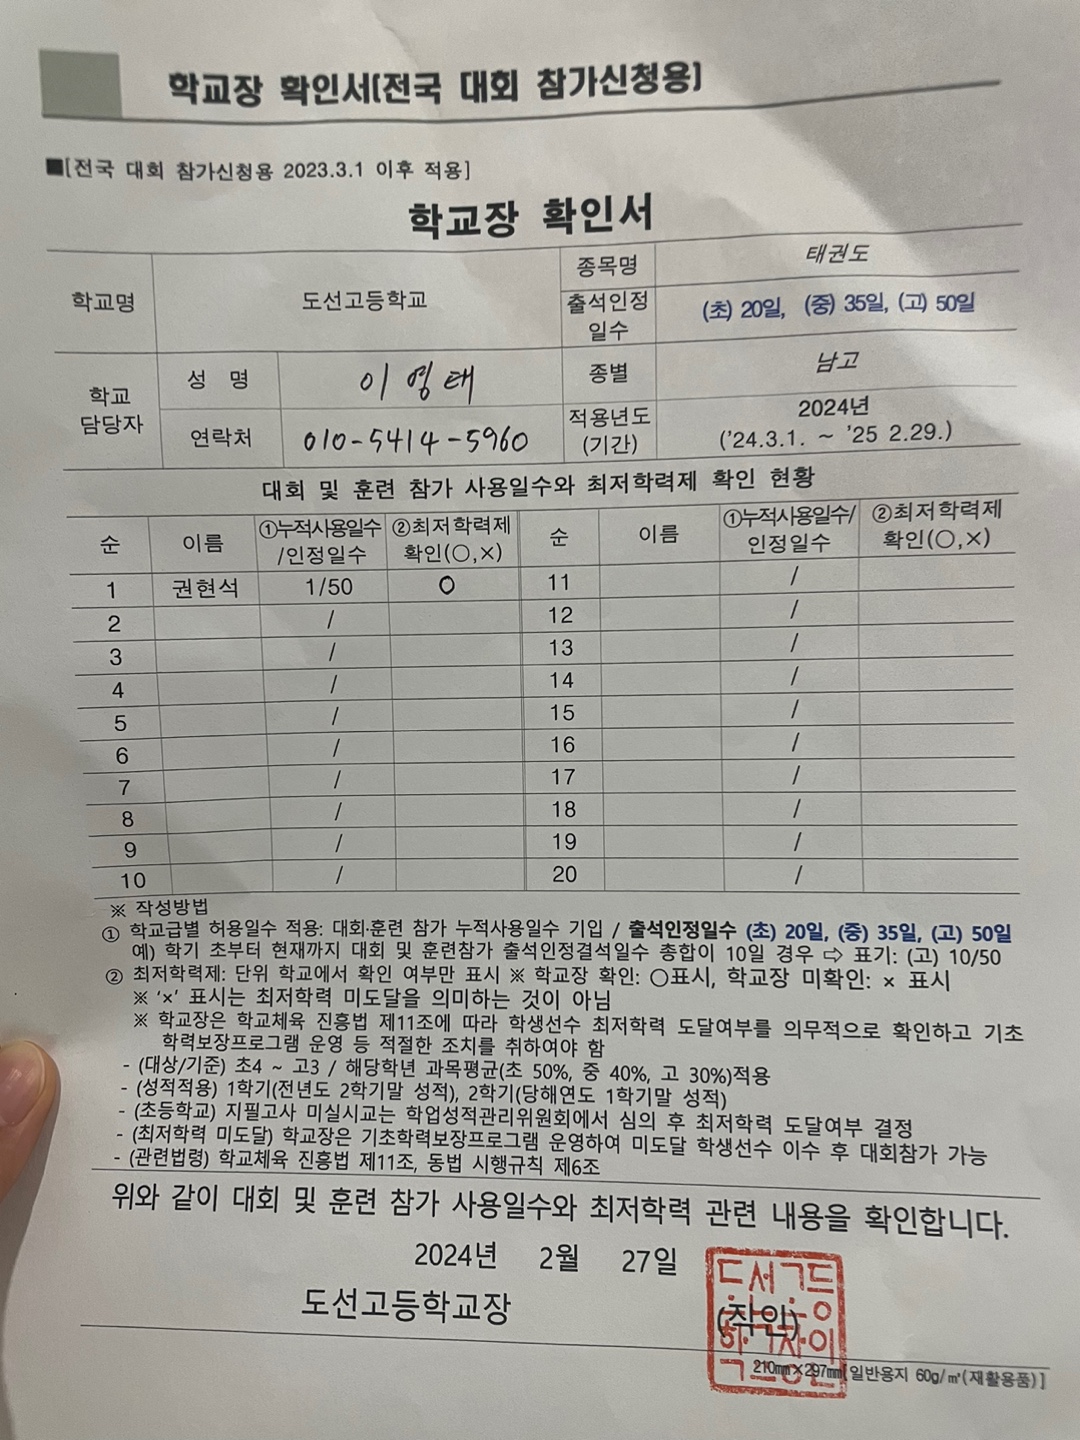 학교장 확인서(전국 대회 참가신청용)
■[전국 대회 참가신청용 2023.3.1 이후 적용]
학교장 확인서
학교명 도선고등학교 종목명 태권도
출석인정 일수 (초) 20일, (중) 35일, (고) 50일
학교 담당자 성 명 이영태 종별 남고
연락처 010-5414-5960 적용년도 (기간) 2024년 ('24.3.1. ~ '25 2.29.)
대회 및 훈련 참가 사용일수와 최저학력제 확인 현황
순 이름 ①누적사용일수/인정일수 ②최저학력제 확인(○,×) 순 이름 ①누적사용일수/인정일수 ②최저학력제 확인(○,×)
1 권현석 1/50 ○ 11 /
2 / 12 /
3 / 13 /
4 / 14 /
5 / 15 /
6 / 16 /
7 / 17 /
8 / 18 /
9 / 19 /
10 / 20 /
※ 작성방법
① 학교급별 허용일수 적용: 대회·훈련 참가 누적사용일수 기입 / 출석인정일수 (초) 20일, (중) 35일, (고) 50일
예) 학기 초부터 현재까지 대회 및 훈련참가 출석인정결석일수 총합이 10일 경우 ⇨ 표기: (고) 10/50
② 최저학력제: 단위 학교에서 확인 여부만 표시 ※ 학교장 확인: ○표시, 학교장 미확인: × 표시
※ '×' 표시는 최저학력 미도달을 의미하는 것이 아님
※ 학교장은 학교체육 진흥법 제11조에 따라 학생선수 최저학력 도달여부를 의무적으로 확인하고 기초
학력보장프로그램 운영 등 적절한 조치를 취하여야 함
- (대상/기준) 초4 ~ 고3 / 해당학년 과목평균(초 50%, 중 40%, 고 30%)적용
- (성적적용) 1학기(전년도 2학기말 성적), 2학기(당해연도 1학기말 성적)
- (초등학교) 지필고사 미실시교는 학업성적관리위원회에서 심의 후 최저학력 도달여부 결정
- (최저학력 미도달) 학교장은 기초학력보장프로그램 운영하여 미도달 학생선수 이수 후 대회참가 가능
- (관련법령) 학교체육 진흥법 제11조, 동법 시행규칙 제6조
위와 같이 대회 및 훈련 참가 사용일수와 최저학력 관련 내용을 확인합니다.
2024년 2월 27일
도선고등학교장 (직인)
210㎜×297㎜[일반용지 60g/㎡(재활용품)]